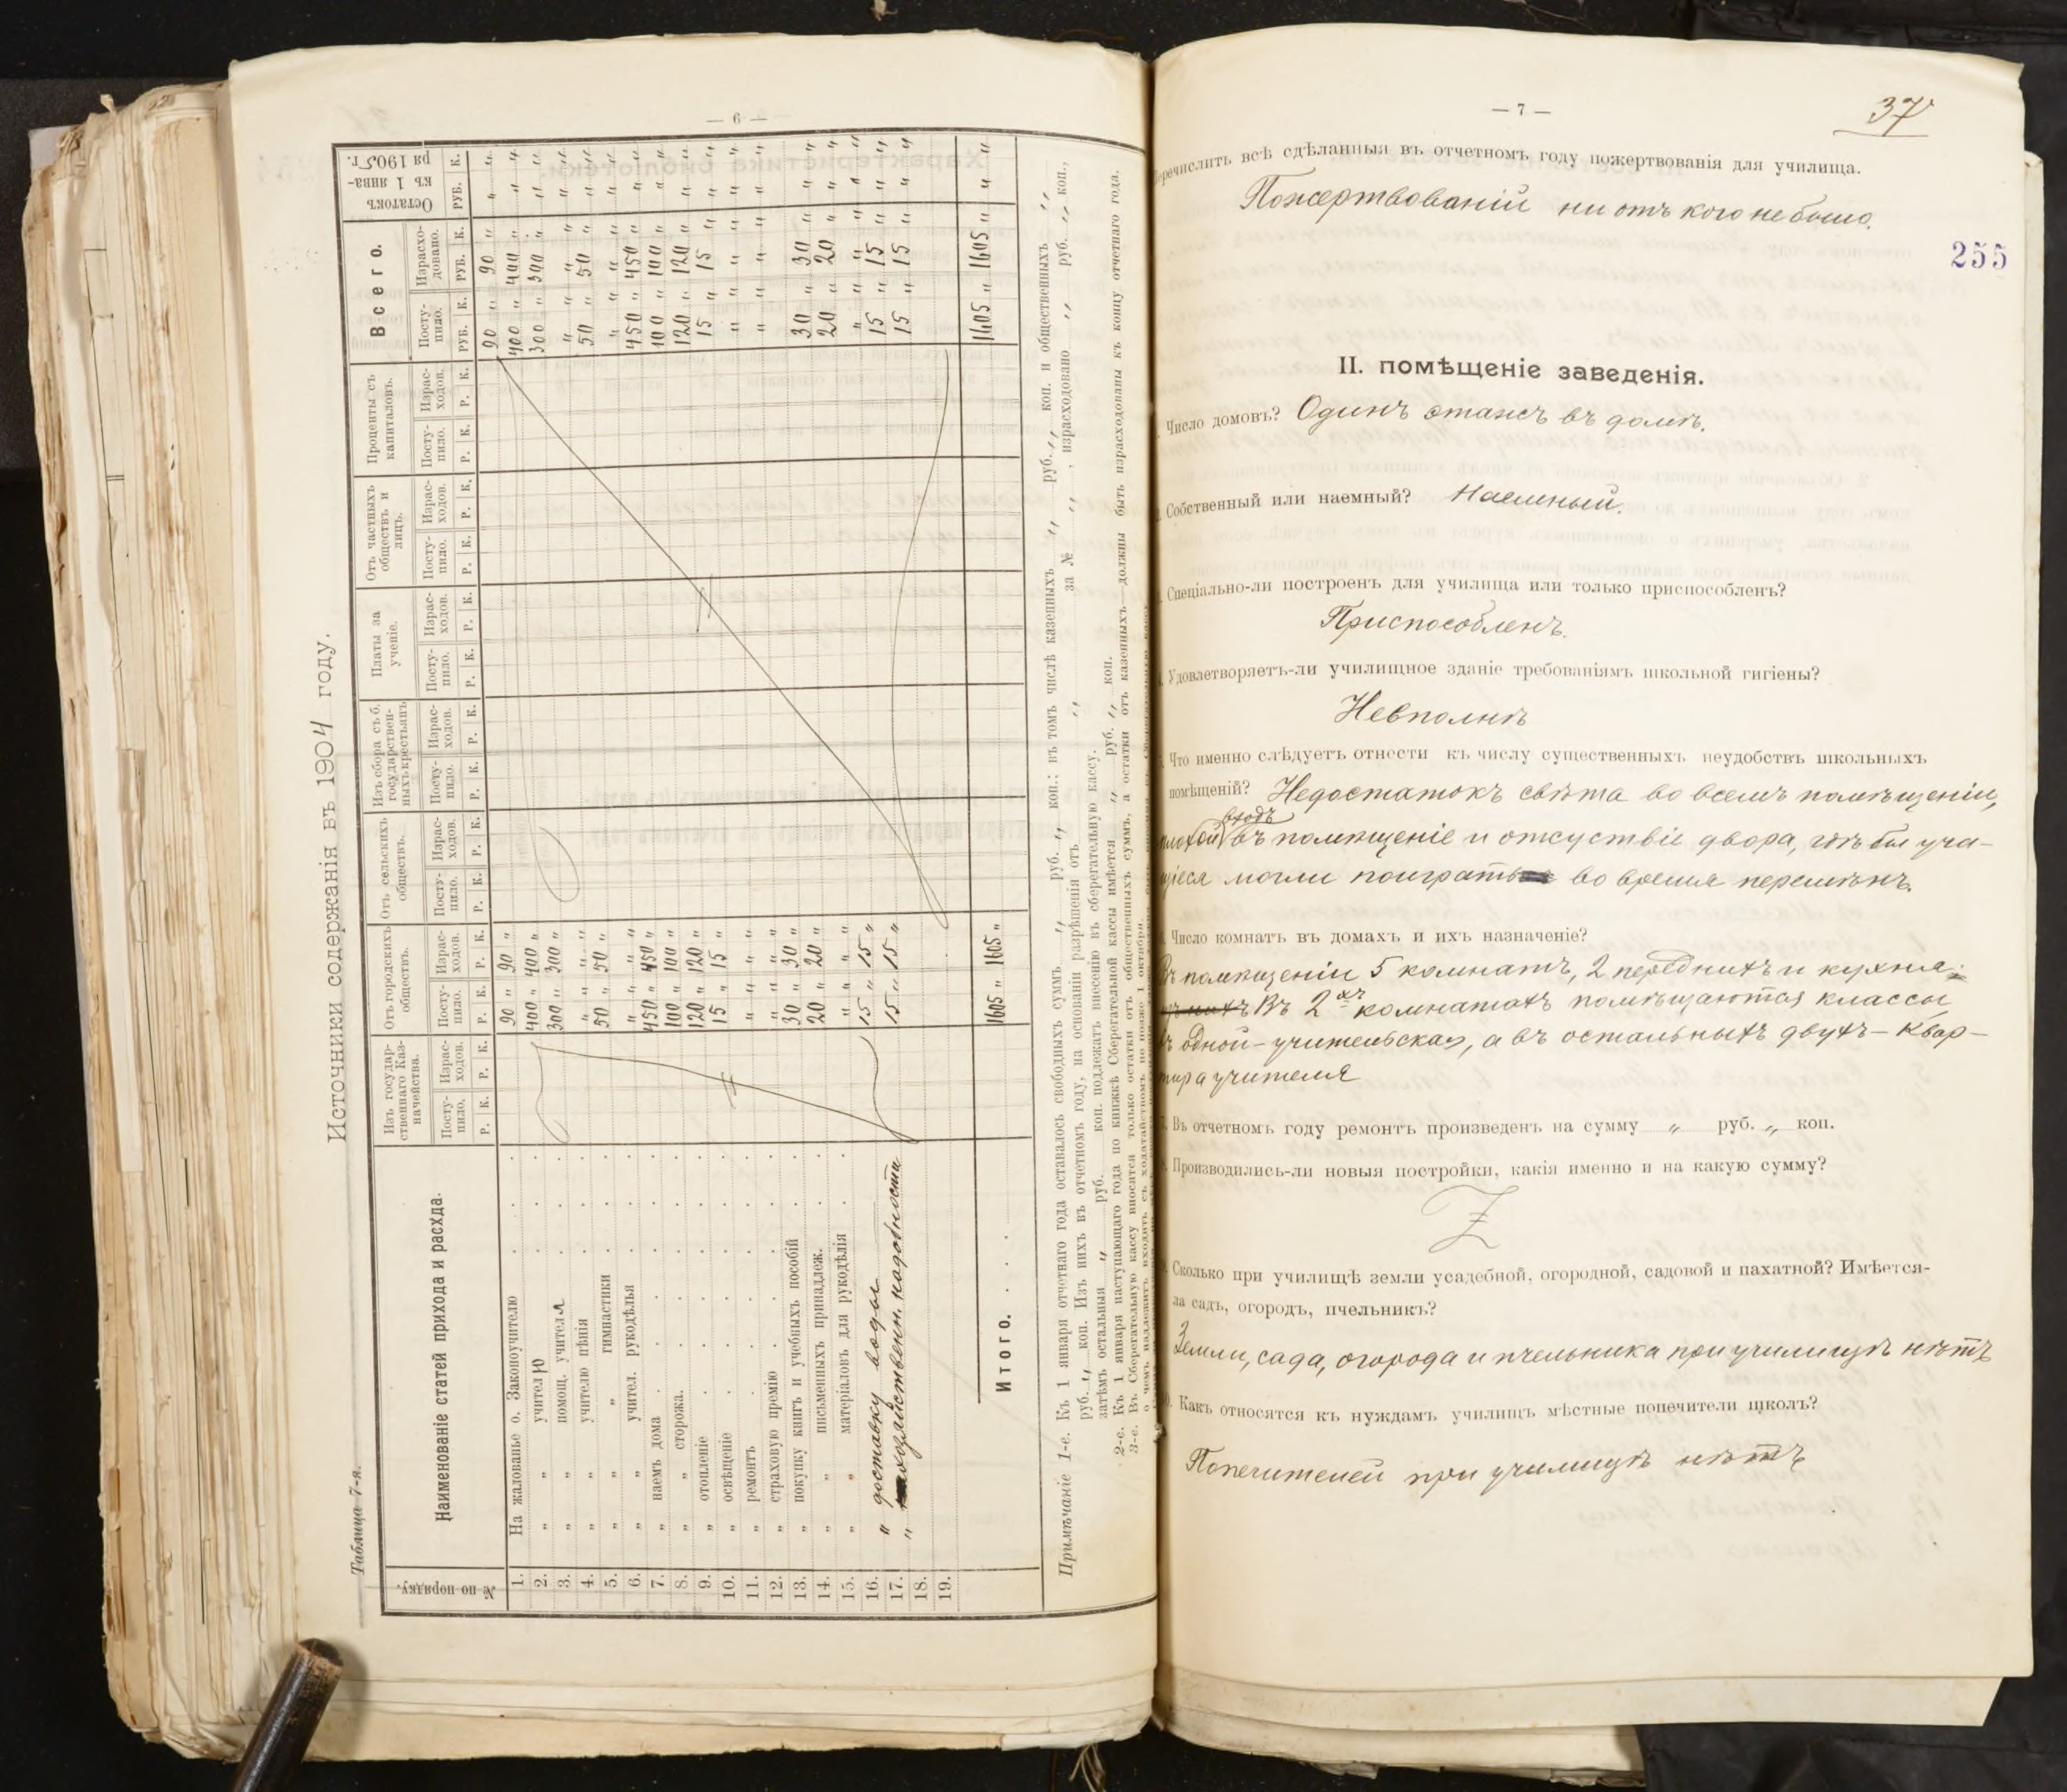 — 6 —
Таблица 7-я.
Источники содержанія въ 1904 году.
№ по порядку.
Наименованіе статей прихода и расхда.
Изъ государ-
ственнаго Каз-
начейства.
Отъ городскихъ
обществъ.
Отъ сельскихъ
обществъ.
Изъ сбора съ б.
государствен-
ныхъ крестьянъ
Платы за
ученіе.
Отъ частныхъ
обществъ и
лицъ.
Проценты съ
капиталовъ.
Всего.
Остатокъ
къ 1 янва-
ря 1905 г.
Посту-
пило. Израс-
ходов. Посту-
пило. Израс-
ходов. Посту-
пило. Израс-
ходов. Посту-
пило. Израс-
ходов. Посту-
пило. Израс-
ходов. Посту-
пило. Израс-
ходов. Посту-
пило. Израс-
ходов. Посту-
пило. Израсхо-
довано.
Р. К. Р. К. Р. К. Р. К. Р. К. Р. К. Р. К. Р. К. Р. К. Р. К. Р. К. Р. К. Р. К. Р. К. РУБ. К. РУБ. К. РУБ. К.
1. На жалованье о. Законоучителю 90 „ 90 „ 90 „ 90 „ „ „
2. „ „ учителю 400 „ 400 „ 400 „ 400 „ „ „
3. „ „ помощ. учителя 300 „ 300 „ 300 „ 300 „ „ „
4. „ „ учителю пѣнія „ „ „ „ „ „ „ „ „ „
5. „ „ „ гимнастики 50 „ 50 „ 50 „ 50 „ „ „
6. „ „ учител. рукодѣлья „ „ „ „ „ „ „ „ „ „
7. „ наемъ дома 450 „ 450 „ 450 „ 450 „ „ „
8. „ „ сторожа. 100 „ 100 „ 100 „ 100 „ „ „
9. „ отопленіе 120 „ 120 „ 120 „ 120 „ „ „
10. „ освѣщеніе 15 „ 15 „ 15 „ 15 „ „ „
11. „ ремонтъ „ „ „ „ „ „ „ „ „ „
12. „ страховую премію „ „ „ „ „ „ „ „ „ „
13. „ покупку книгъ и учебныхъ пособій 30 „ 30 „ 30 „ 30 „ „ „
14. „ „ письменныхъ принадлеж. 20 „ 20 „ 20 „ 20 „ „ „
15. „ „ матеріаловъ для рукодѣлія „ „ „ „ „ „ „ „ „ „
16. „ доставку воды 15 „ 15 „ 15 „ 15 „ „ „
17. „ хозяйственн. надобности 15 „ 15 „ 15 „ 15 „ „ „
18.
19.
Итого. 1605 „ 1605 „ 1605 „ 1605 „ „ „
Примѣчаніе 1-е. Къ 1 января отчетнаго года оставалось свободныхъ суммъ „ руб. „ коп.: въ томъ числѣ казенныхъ „ руб. „ коп. и общественныхъ „
руб. „ коп. Изъ нихъ въ отчетномъ году, на основаніи разрѣшенія отъ „ за № „ , израсходовано „ руб. „ коп.,
затѣмъ остальныя „ руб. коп. подлежатъ внесенію въ сберегательную кассу.
2-е. Къ 1 января наступающаго года по книжкѣ Сберегательной кассы имѣется „ руб. „ коп.
3-е. Въ Сберегательную кассу вносятся только остатки отъ общественныхъ суммъ, а остатки отъ казенныхъ—должны быть израсходованы къ концу отчетнаго года.
— 7 —
37
Перечислить всѣ сдѣланныя въ отчетномъ году пожертвованія для училища.
Пожертвованій ни отъ кого не было.
255
II. помѣщеніе заведенія.
Число домовъ? Одинъ этажъ въ домѣ.
Собственный или наемный? Наемный.
Спеціально-ли построенъ для училища или только приспособленъ?
Приспособленъ.
Удовлетворяетъ-ли училищное зданіе требованіямъ школьной гигіены?
Невполнѣ
Что именно слѣдуетъ отнести къ числу существенныхъ неудобствъ школьныхъ
помѣщеній? Недостатокъ свѣта во всемъ помѣщеніи,
плохой входъ въ помѣщеніе и отсуствіе двора, гдѣ бы уча-
щіеся могли поиграть во время перемѣнъ.
Число комнатъ въ домахъ и ихъ назначеніе?
Въ помѣщеніи 5 комнатъ, 2 переднихъ и кухня
Въ 2хъ комнатахъ помѣщаются классы
въ одной – учительская, а въ остальныхъ двухъ – квар-
тира учителя
Въ отчетномъ году ремонтъ произведенъ на сумму „ руб. „ коп.
Производились-ли новыя постройки, какія именно и на какую сумму?
Сколько при училищѣ земли усадебной, огородной, садовой и пахатной? Имѣется-
ла садъ, огородъ, пчельникъ?
Земли, сада, огорода и пчельника при училищѣ нѣтъ
Какъ относятся къ нуждамъ училищъ мѣстные попечители школъ?
Попечителей при училищѣ нѣтъ